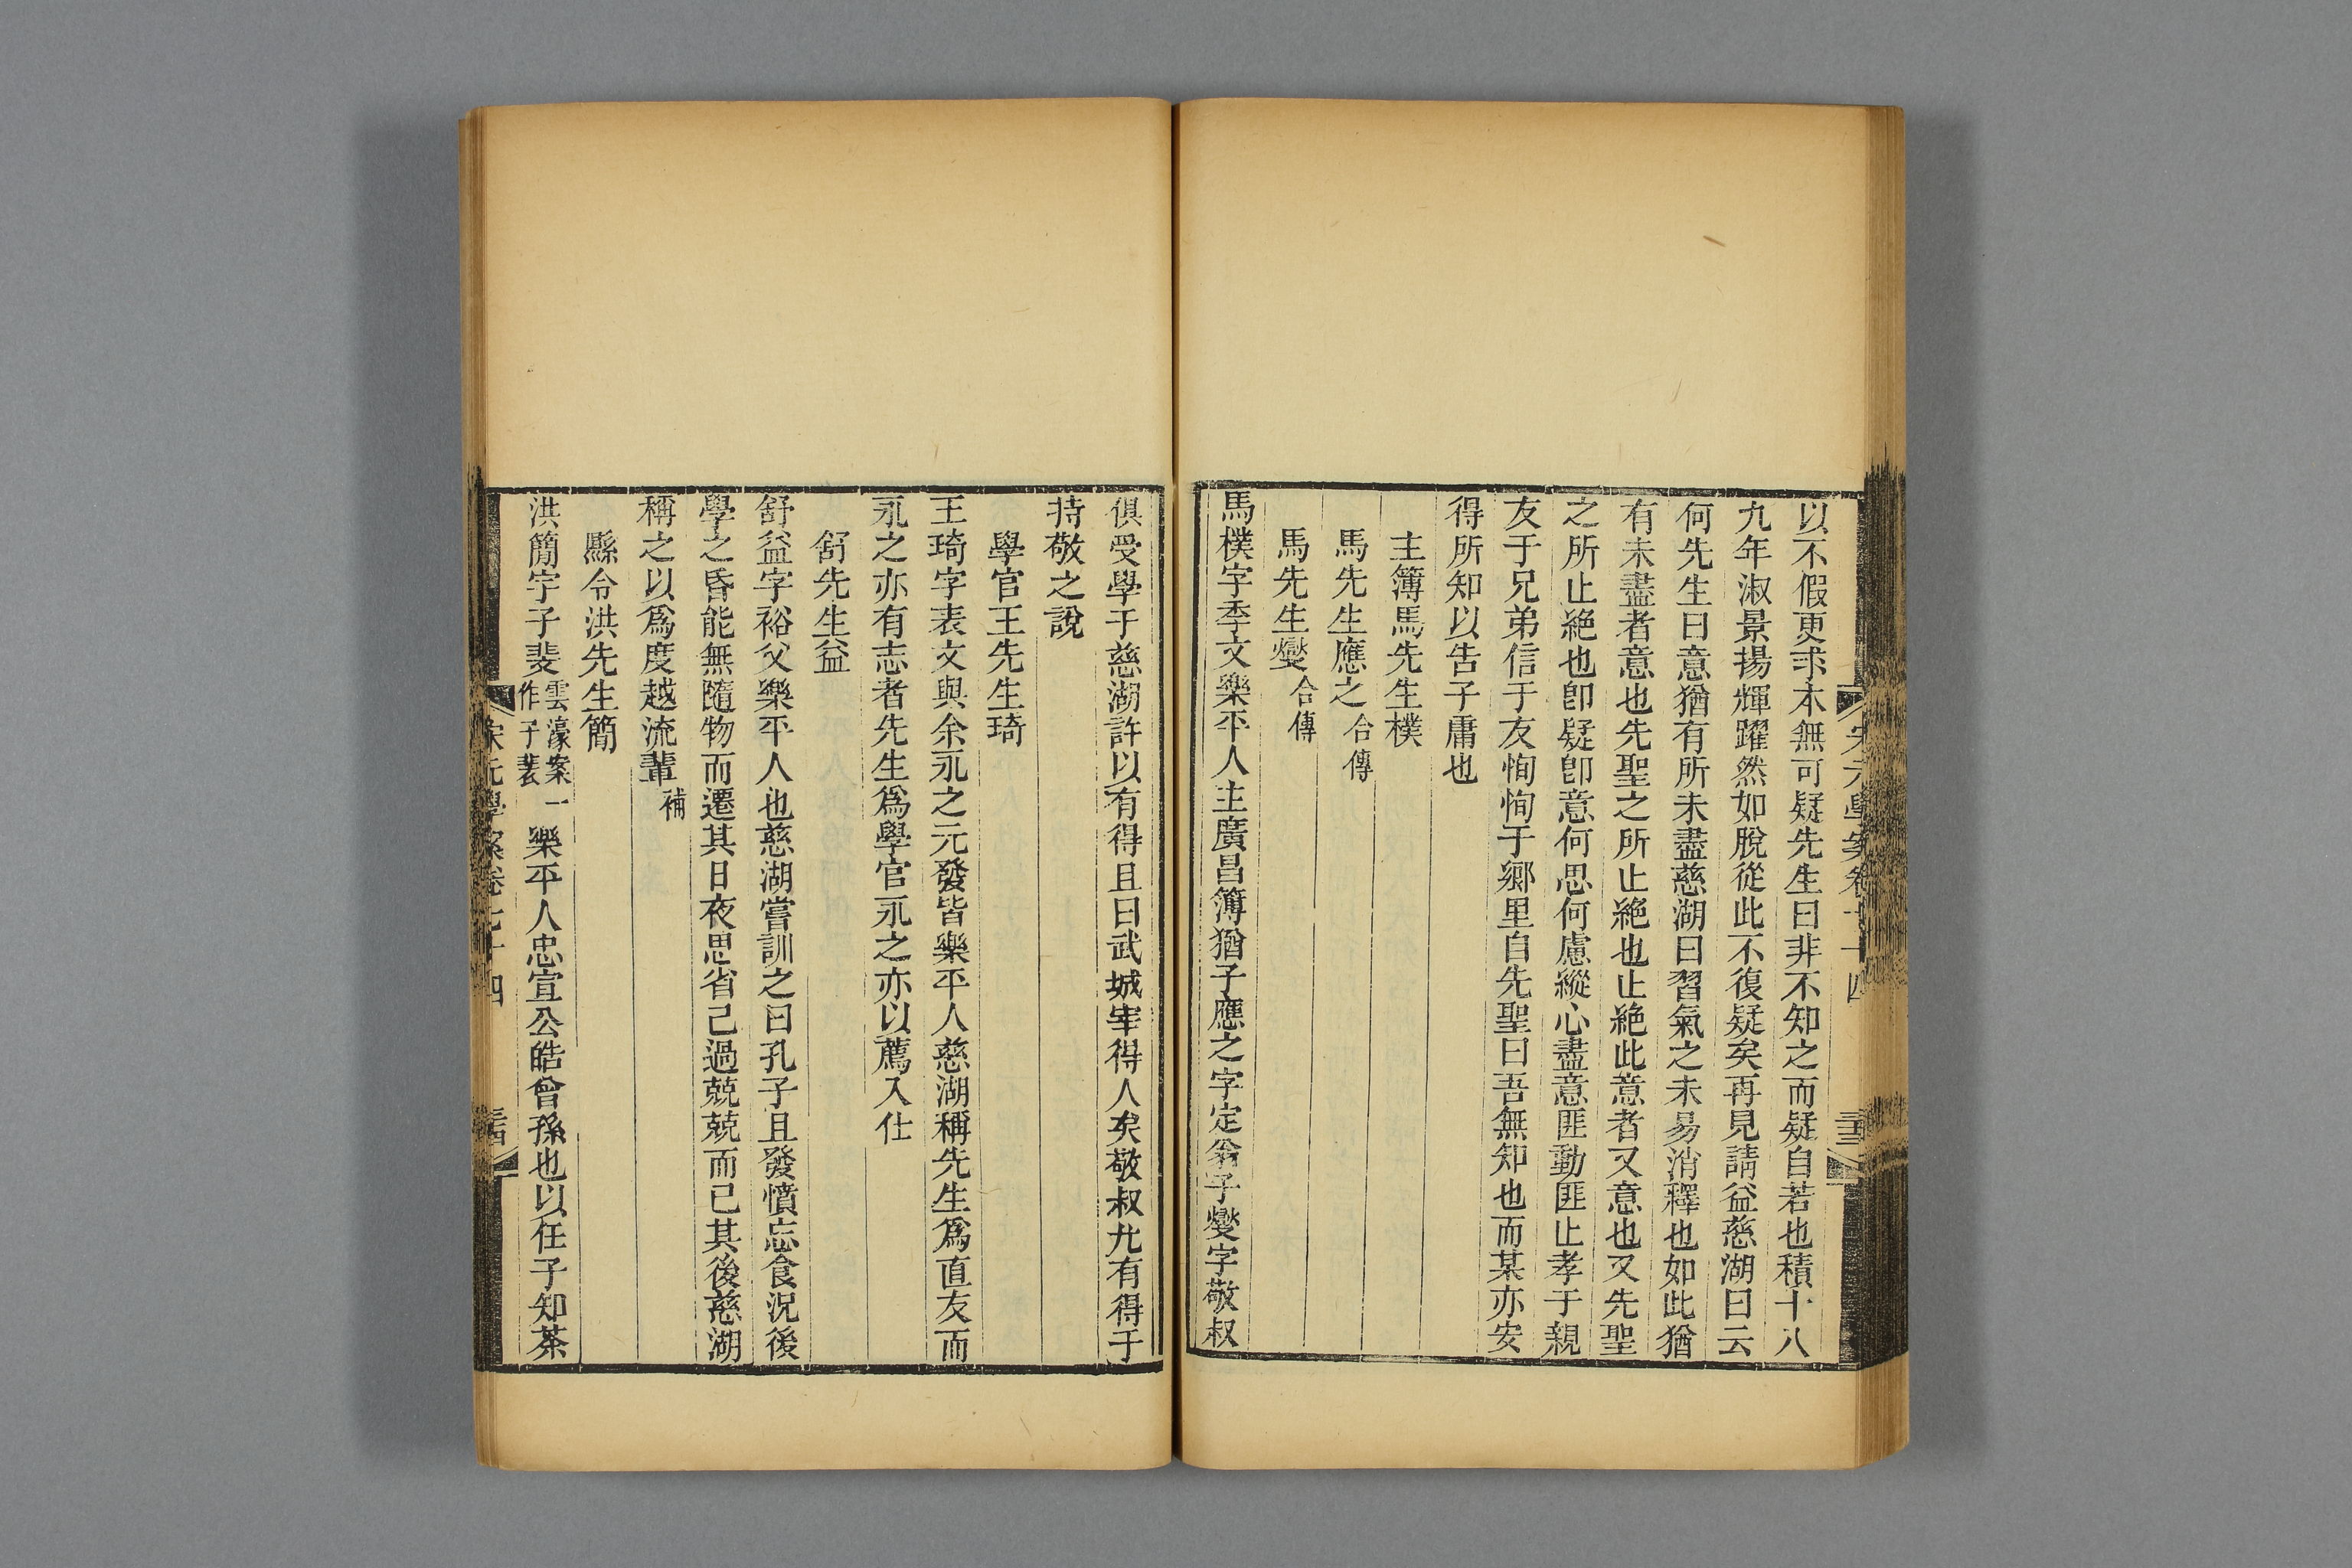 以不假更求本無可疑先生曰非不知之而疑自若也積十八
九年淑景揚輝躍然如脫從此不復疑矣再見請益慈湖曰云
何先生曰意猶有所未盡慈湖曰習氣之未易消釋也如此猶
有未盡者意也先聖之所止絶也止絶此意者又意也又先聖
之所止絶也卽疑卽意何思何慮縱心盡意匪動匪止孝于親
友于兄弟信于友恂恂于鄉里自先聖曰吾無知也而某亦安
得所知以告子庸也
主簿馬先生樸
馬先生應之合傳
馬先生燮合傳
馬樸字季文樂平人主廣昌簿猶子應之字定翁子燮字敬叔
俱受學于慈湖許以有得且曰武城宰得人矣敬叔尤有得于
持敬之說
學官王先生琦
王琦字表文與余永之元發皆樂平人慈湖稱先生爲直友而
永之亦有志者先生爲學官永之亦以薦入仕
舒先生益
舒益字裕父樂平人也慈湖嘗訓之曰孔子且發憤忘食況後
學之昏能無隨物而遷其日夜思省己過兢兢而已其後慈湖
稱之以爲度越流輩補
縣令洪先生簡
洪簡字子斐雲濠案一作子裴樂平人忠宣公皓曾孫也以任子知茶
宋元學案卷七十四